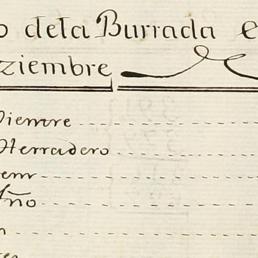 o dela Burrada e
ziembre
Vientre
Herradero
em
tño
n